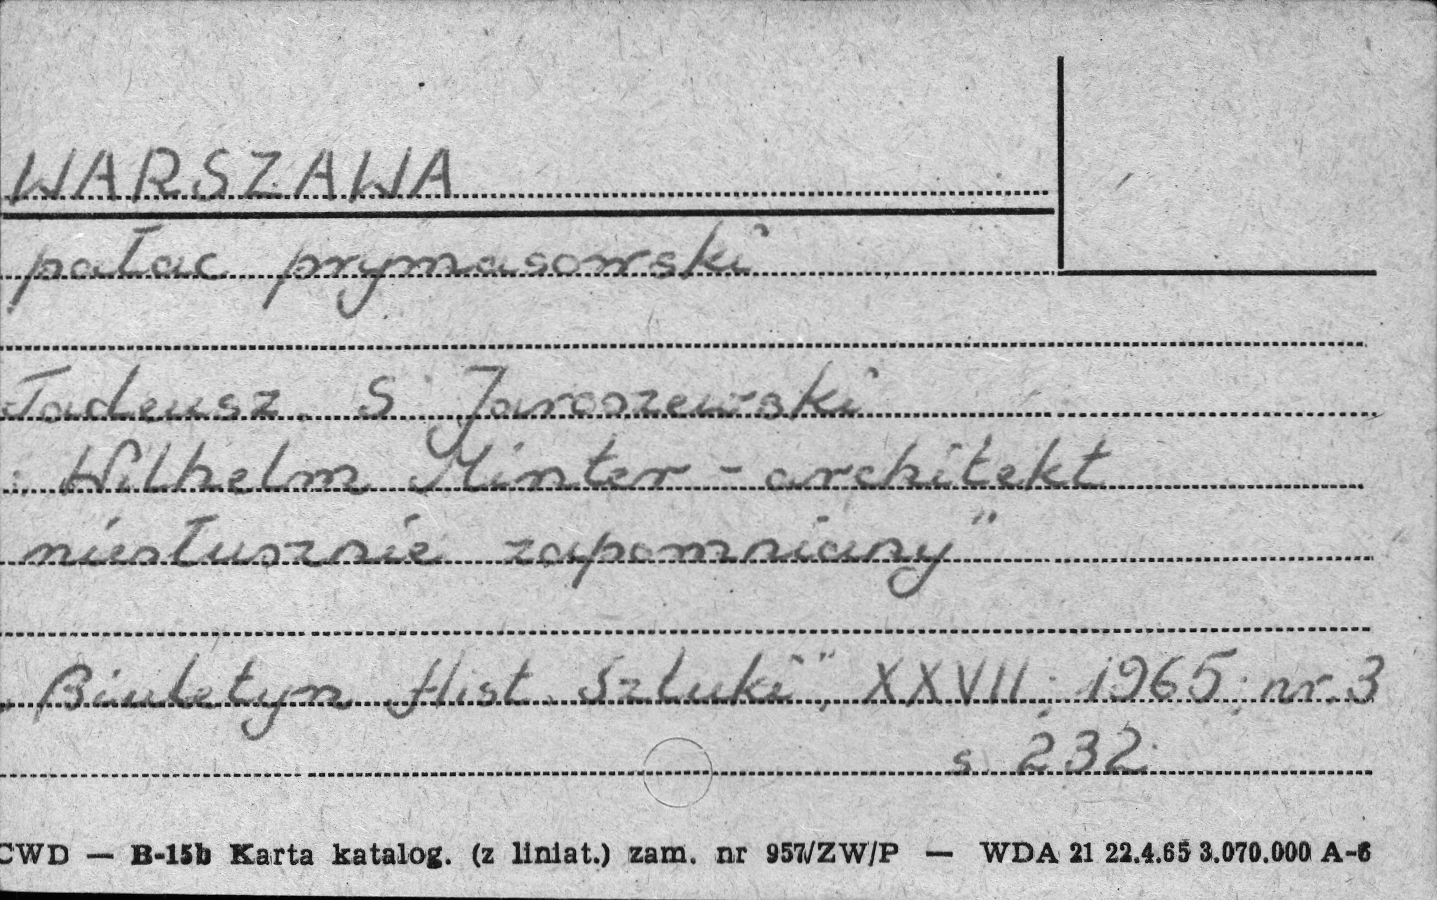 WARSZAWA
pałac prymasowski
Tadeusz S Jaroszewski
: Wilhelm Minter - architekt
niesłusznie zapomniany"
„Biuletyn Hist. Sztuki", XXVII; 1965; nr. 3
s. 232
CWD — B-15b Karta katalog. (z liniat.) zam. nr 957/ZW/P — WDA 21 22.4.65 3.070.000 A-6